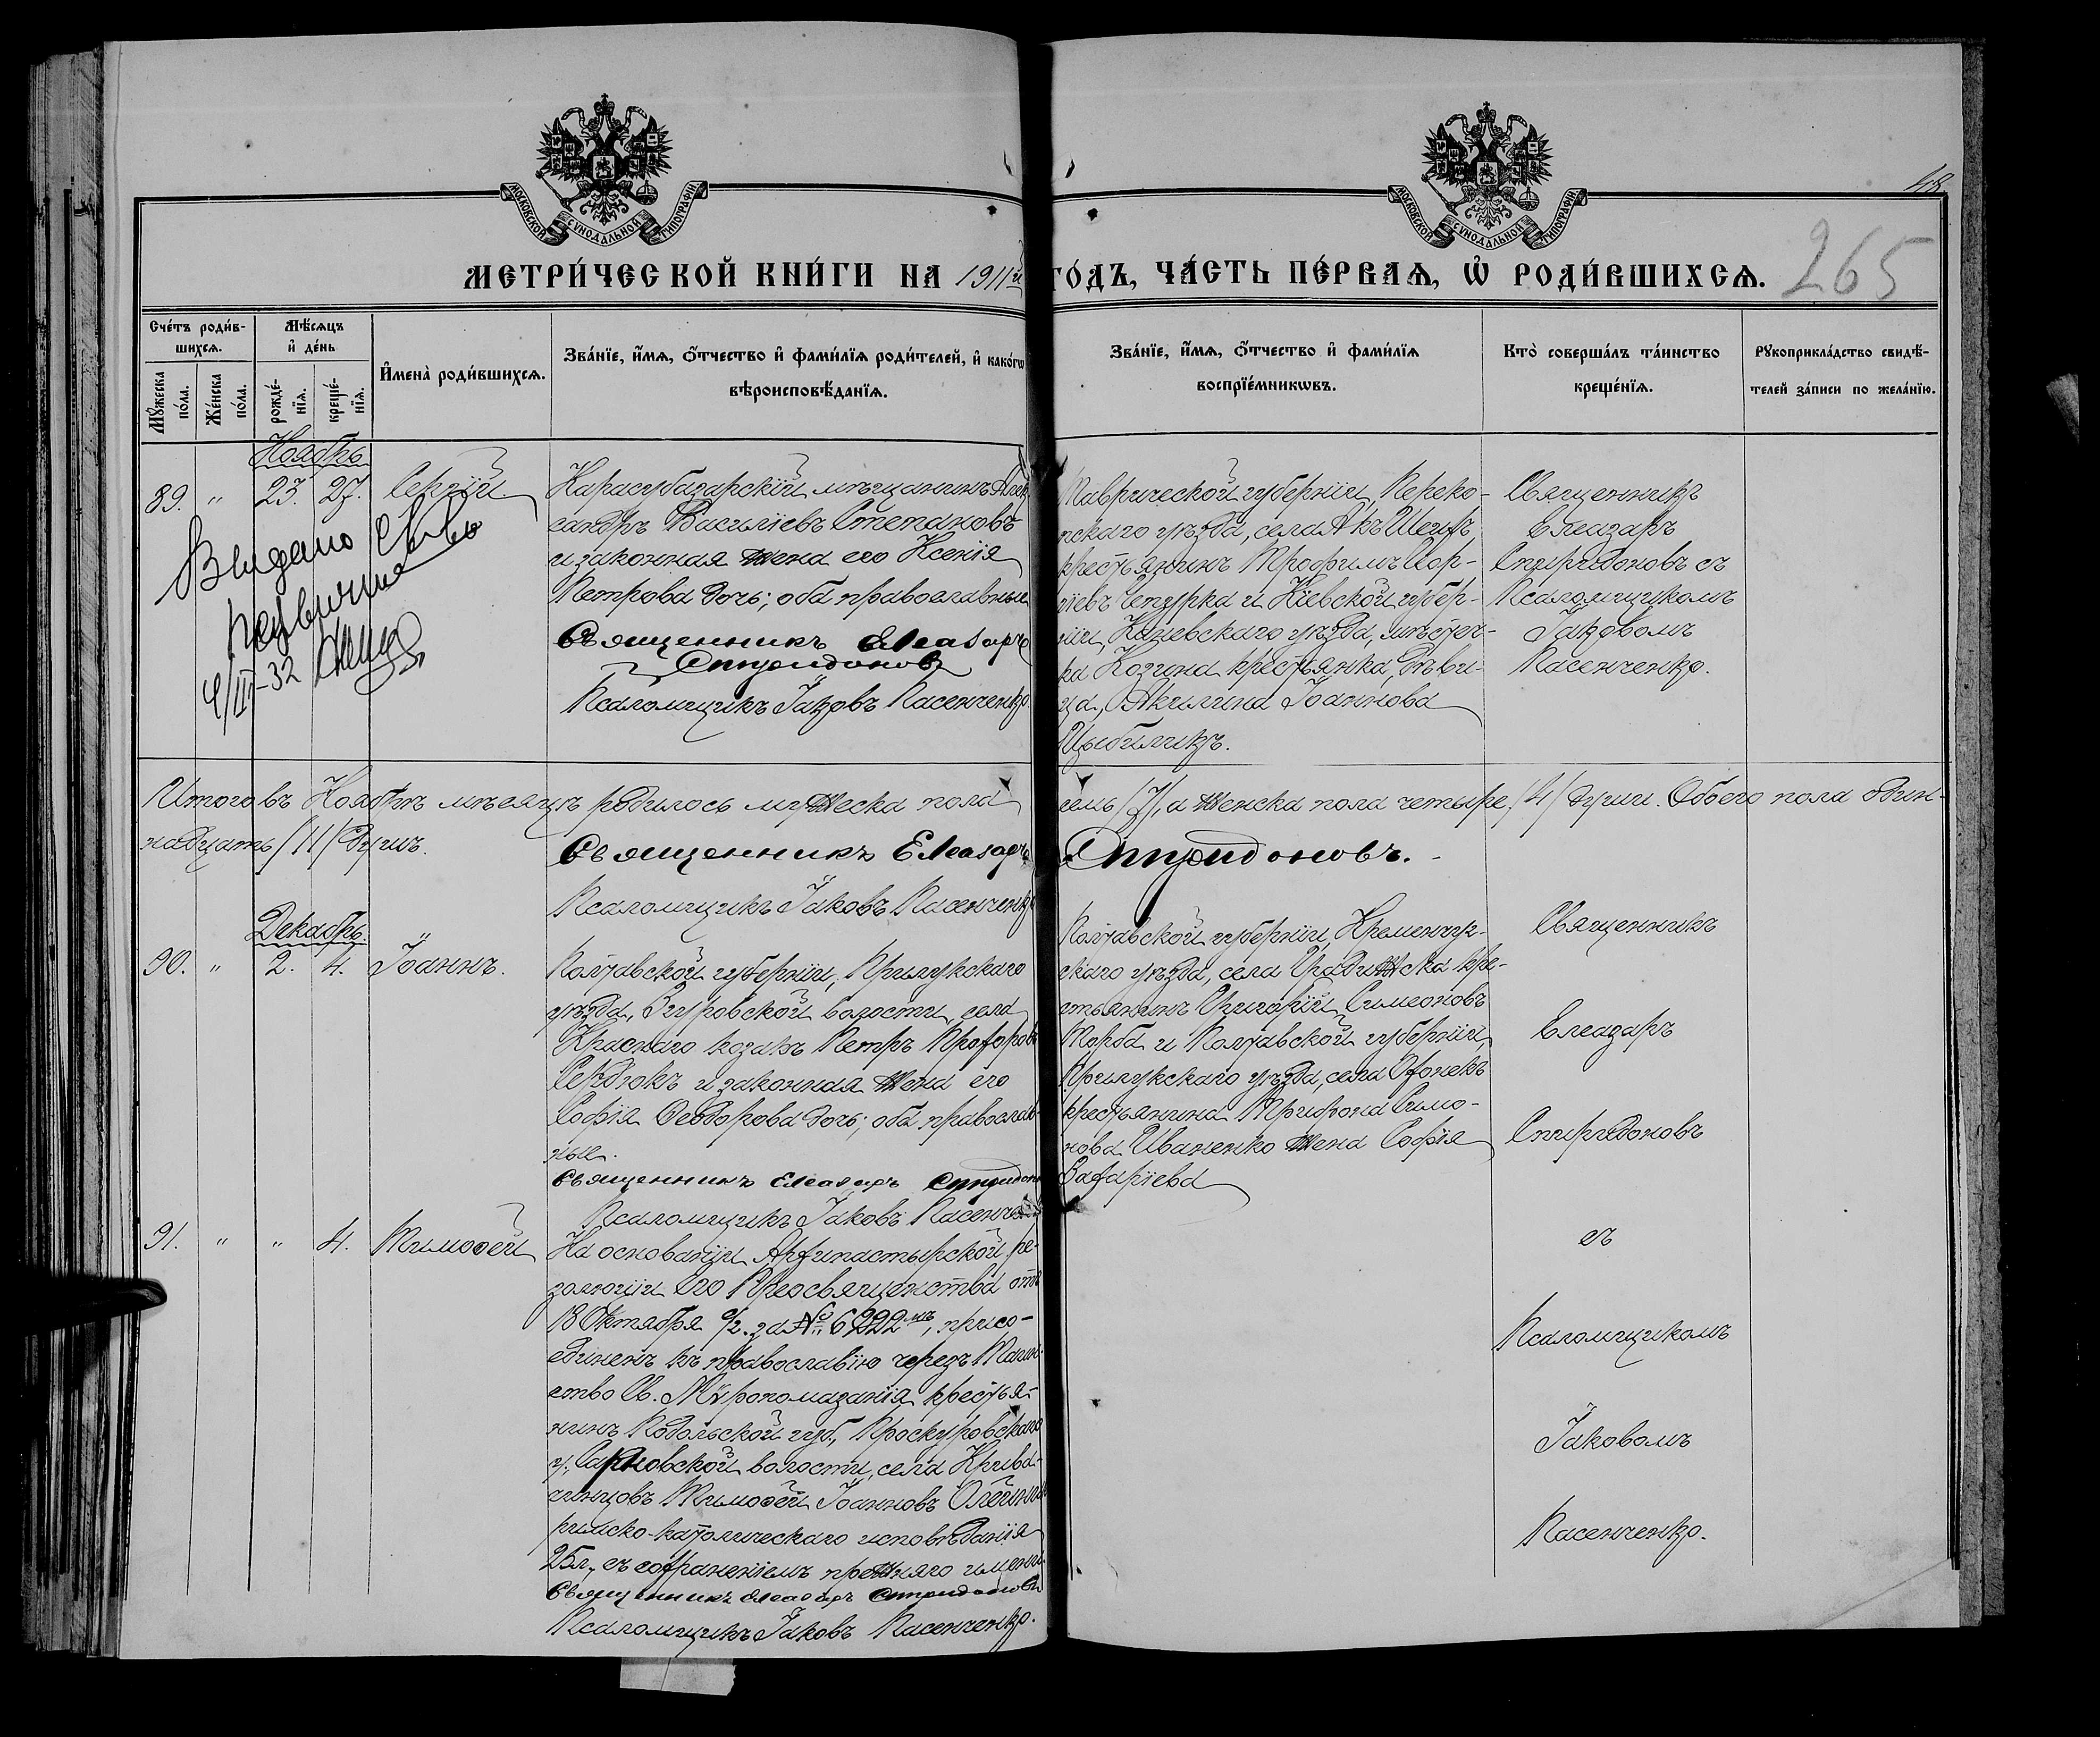 МОСКОВСКОЙ СѴНОДАЛЬНОЙ ТИПОГРАФІИ
МОСКОВСКОЙ СѴНОДАЛЬНОЙ ТИПОГРАФІИ
48
265
МЕТРИ́ЧЕСКОЙ КНИ́ГИ НА 1911й ГО́ДЪ, ЧА́СТЬ ПЕ́РВАѦ, Ѡ҆ РОДИ́ВШИХСѦ.
Сче́тъ роди́в-
шихсѧ.
Мꙋ́жеска
по́ла.
Же́нска
по́ла.
Мѣ́сѧцъ
и҆ де́нь
рожде́-
нїѧ.
креще́-
нїѧ.
И҆мена̀ роди́вшихсѧ.
Зва́нїе, и҆́мѧ, ѻ҆́тчество и҆ фами́лїѧ роди́телей, и҆ како́гѡ
вѣроисповѣ́данїѧ.
Зва́нїе, и҆́мѧ, ѻ҆́тчество и҆ фами́лїѧ
воспрїе́мникѡвъ.
Кто̀ соверша́лъ та́инство
креще́нїѧ.
Рꙋкоприкла́дство свидѣ́-
телей за́писи по жела́нїю.
Ноябрь
89. " 23. 27. Сергій
Карасубазарскій мѣщанинъ Алек
сандръ Василіевъ Степановъ
и законная жена его Ксенія
Петрова дочь; оба православные
Священникъ Елеазаръ
Спиридоновъ
Псаломщикъ Іаковъ Пасенченко.
Выдано св-во
4/III-32
Таврической губерніи, Переко-
пскаго уѣзда, села Акъ Шеихъ,
крестьянинъ Трофимъ Пор-
ріевъ Чепурка и Кіевской губер-
ніи, Каневскаго уѣзда, мѣстеч-
ка Козина крестьянка, дѣви-
ца, Акилина Іоаннова
Цыбуликъ.
Священникъ
Елеазаръ
Спиридоновъ съ
Псаломщикомъ
Іаковомъ
Пасенченко.
Итого въ Ноябрѣ мѣсяцѣ родилось мужеска пола семь /7/, а женска пола четыре /4/ души. Обоего пола один-
надцать /11/ душъ.
Священникъ Елеазаръ Спиридоновъ.
Псаломщикъ Іаковъ Пасенченко
Декабрь.
90. " 2. 4. Іоаннъ.
Полтавской губерніи, Прилукскаго
уѣзда, Згуровской волости, села
Краснаго козакъ Петръ Прохоровъ
Сердюкъ и законная жена его
Софія Ѳеодорова дочь; оба православ-
ные.
Священникъ Елеазаръ Спиридоновъ
Псаломщикъ Іаковъ Пасенченко
Полтавской губерніи, Кременчуг-
скаго уѣзда, села Градижска кре-
стьянинъ Григорій Симеоновъ
Торба и Полтавской губерніи,
Прилукскаго уѣзда, села
крестьянина Трифона Симо-
нова Иваненко жена Софія
Захаріева
91. " " 4. Тимоѳей
На основаніи Архипастырской ре-
золюціи Его Преосвященства отъ
18 Октября с/г. за № 6222мъ, присо-
единенъ къ православію чрезъ Таин-
ство Св. Мѵропомазанія крестья-
нинъ Подольской губ., Проскуровскаго
у., волости, села Крива-
чинцовъ Тимоѳей Іоанновъ Олейникъ
римско-католическаго исповѣданія
25 л., съ сохраненіемъ прежняго имени.
Священникъ Елеазаръ Спиридоновъ
Псаломщикъ Іаковъ Пасенченко.
Священникъ
Елеазаръ
Спиридоновъ
съ
Псаломщикомъ
Іаковомъ
Пасенченко.